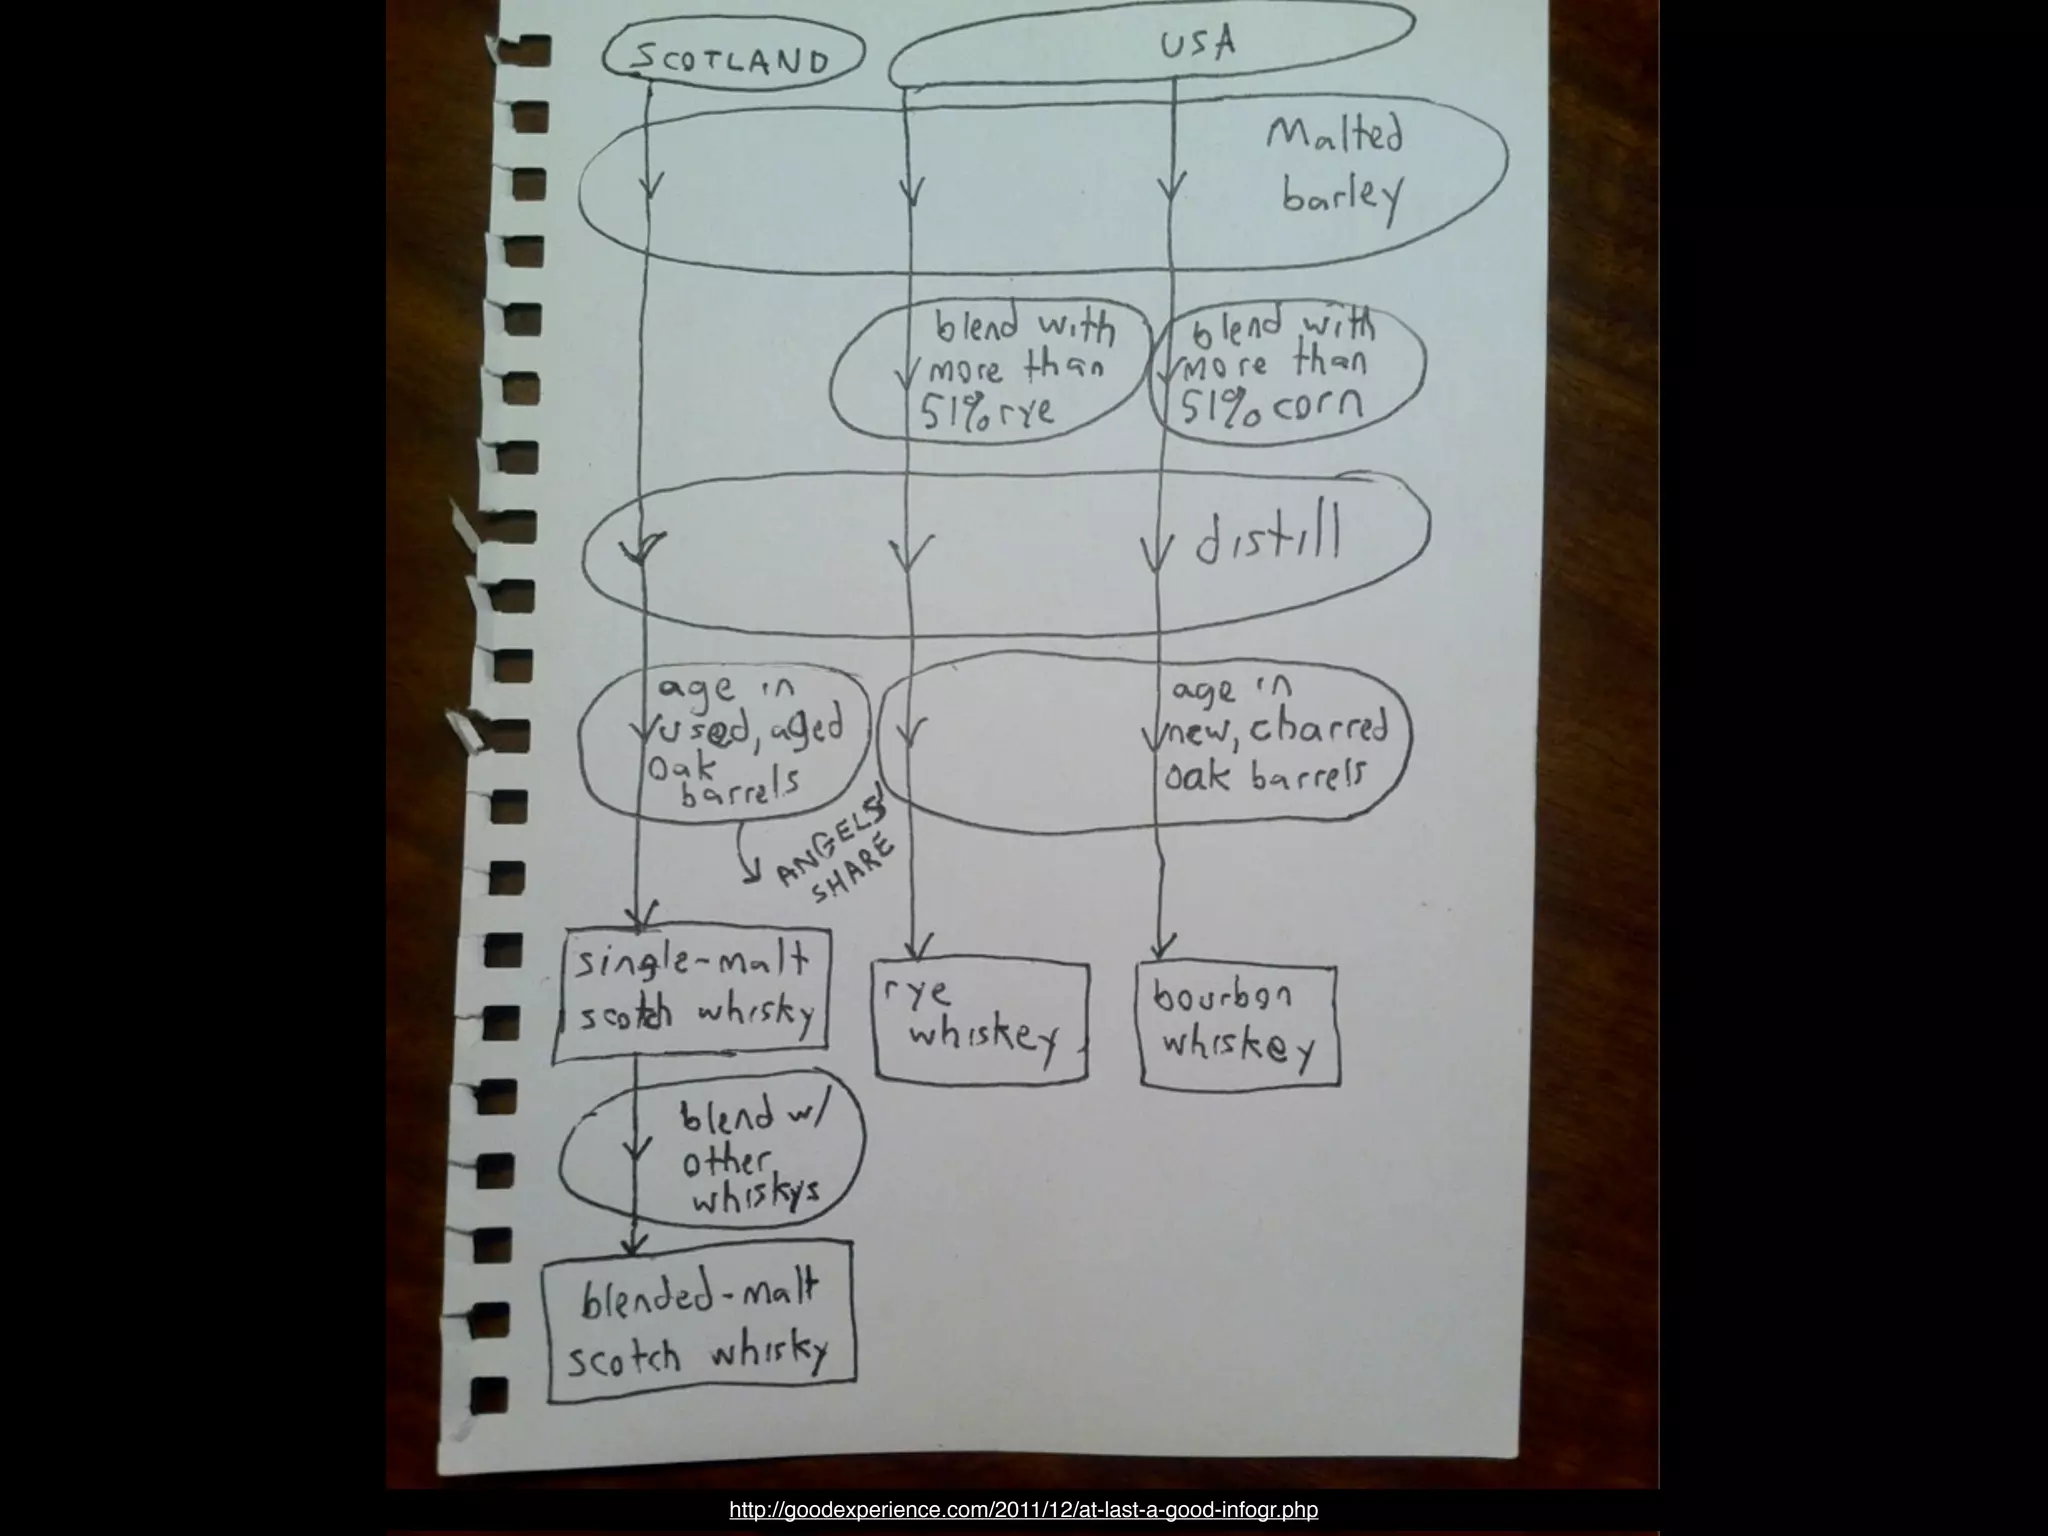 SCOTLAND
USA
Malted
barley
blend with
more than
51% rye
blend with
more than
51% corn
distill
age in
used, aged
oak
barrels
age in
new, charred
oak barrels
ANGELS'
SHARE
single-malt
scotch whisky
rye
whiskey
bourbon
whiskey
blend w/
other
whiskys
blended-malt
scotch whisky
http://goodexperience.com/2011/12/at-last-a-good-infogr.php